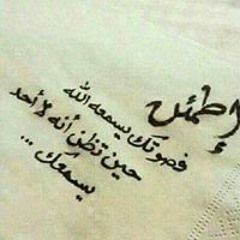 إطمئن
فصوتك يسمعه الله
حين تظن أنه لا أحد
يسمعك ...